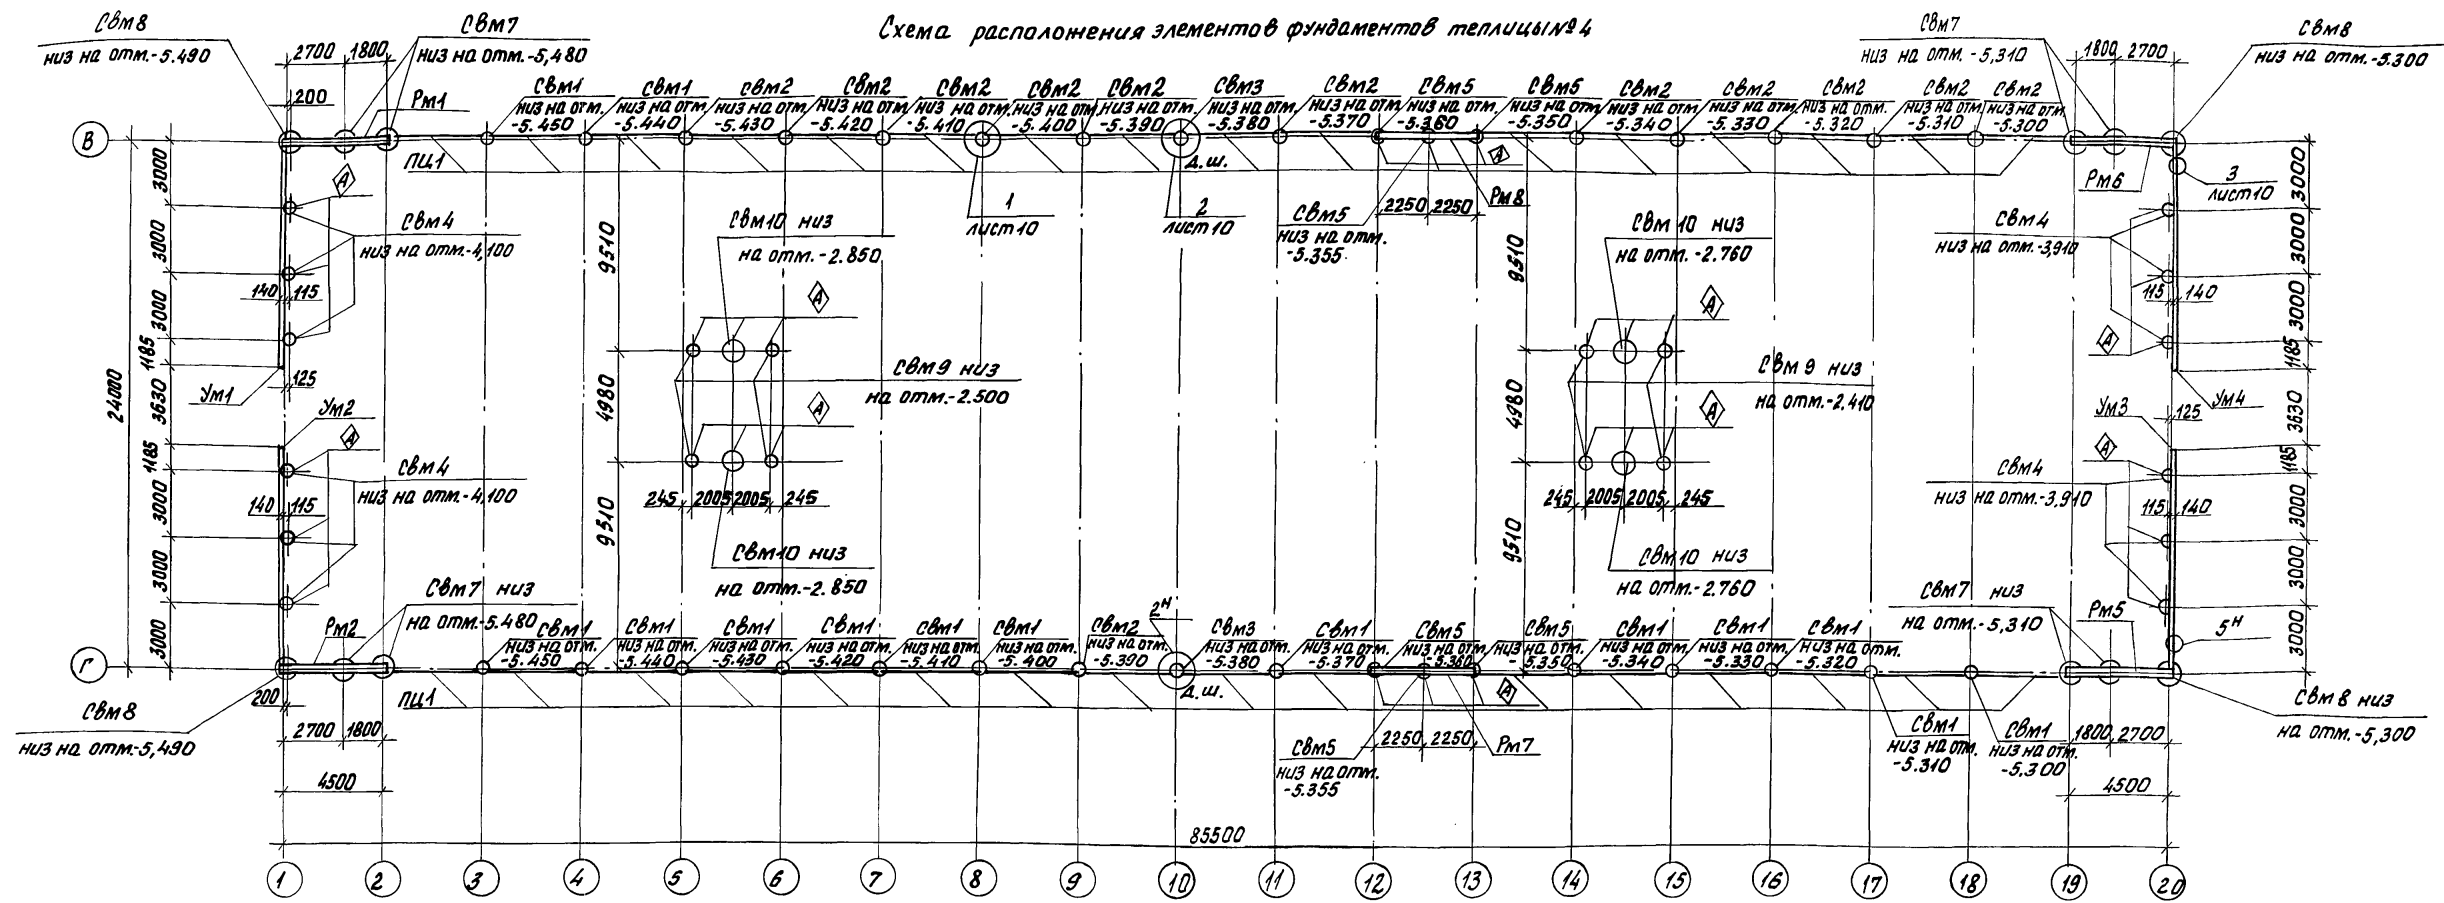 Схема расположения элементов фундаментов теплицы №4
Свм8
низ на отм.-5.490
2700
1800
Свм7
низ на отм.-5,480
200
Рм1
Свм1
низ на отм.
-5.450
Свм1
низ на отм
-5.440
Свм2
низ на отм.
-5.430
Свм2
низ на отм
-5.420
Свм2
низ на отм
-5.410
Свм2
низ на отм
-5.400
Свм2
низ на отм.
-5.390
Свм3
низ на отм.
-5.380
Свм2
низ на отм
-5.370
Свм5
низ на отм.
-5.360
Свм5
низ на отм.
-5.350
Свм2
низ на отм.
-5.340
Свм2
низ на отм
-5.330
Свм2
низ на отм.
-5.320
Свм2
низ на отм.
-5.310
Свм2
низ на отм.
-5.300
Свм7
низ на отм.-5,310
1800
2700
Свм8
низ на отм.-5.300
В
ПЦ1
Д.ш.
А
А
1
лист10
2
лист10
Свм5
низ на отм.
-5.355
2250
2250
Рм8
Рм6
3
лист10
3000
3000
3000
1185
3630
1185
3000
3000
3000
24000
Свм4
низ на отм.-4,100
140
115
125
Ум1
Ум2
А
Свм4
низ на отм.-4,100
140
115
9510
4980
9510
Свм10 низ
на отм.-2.850
А
Свм9 низ
на отм.-2.500
А
245
2005
2005
245
Свм10 низ
на отм.-2.850
9510
4980
9510
Свм10 низ
на отм.-2.760
А
Свм9 низ
на отм.-2.410
А
245
2005
2005
245
Свм10 низ
на отм.-2.760
Свм4
низ на отм.-3,910
115
140
А
Ум3
Ум4
125
А
Свм4
низ на отм.-3,910
115
140
3000
3000
3000
1185
3630
1185
3000
3000
3000
Рм2
Свм7 низ
на отм.-5.480
Свм1
низ на отм.
-5.450
Свм1
низ на отм.
-5.440
Свм1
низ на отм.
-5.430
Свм1
низ на отм.
-5.420
Свм1
низ на отм.
-5.410
Свм1
низ на отм.
-5.400
Свм2
низ на отм.
-5.390
2н
Свм3
низ на отм.
-5.380
Свм1
низ на отм.
-5.370
Свм5
низ на отм.
-5.360
Свм5
низ на отм.
-5.350
Свм1
низ на отм.
-5.340
Свм1
низ на отм.
-5.330
Свм1
низ на отм.
-5.320
Свм7 низ
на отм.-5,310
Рм5
5н
Г
ПЦ1
Д.ш.
А
200
Свм8
низ на отм.-5,490
2700
1800
4500
Свм5
низ на отм.
-5.355
2250
2250
Рм7
Свм1
низ на отм.
-5.310
Свм1
низ на отм.
-5.300
1800
2700
4500
Свм8 низ
на отм.-5,300
85500
1
2
3
4
5
6
7
8
9
10
11
12
13
14
15
16
17
18
19
20